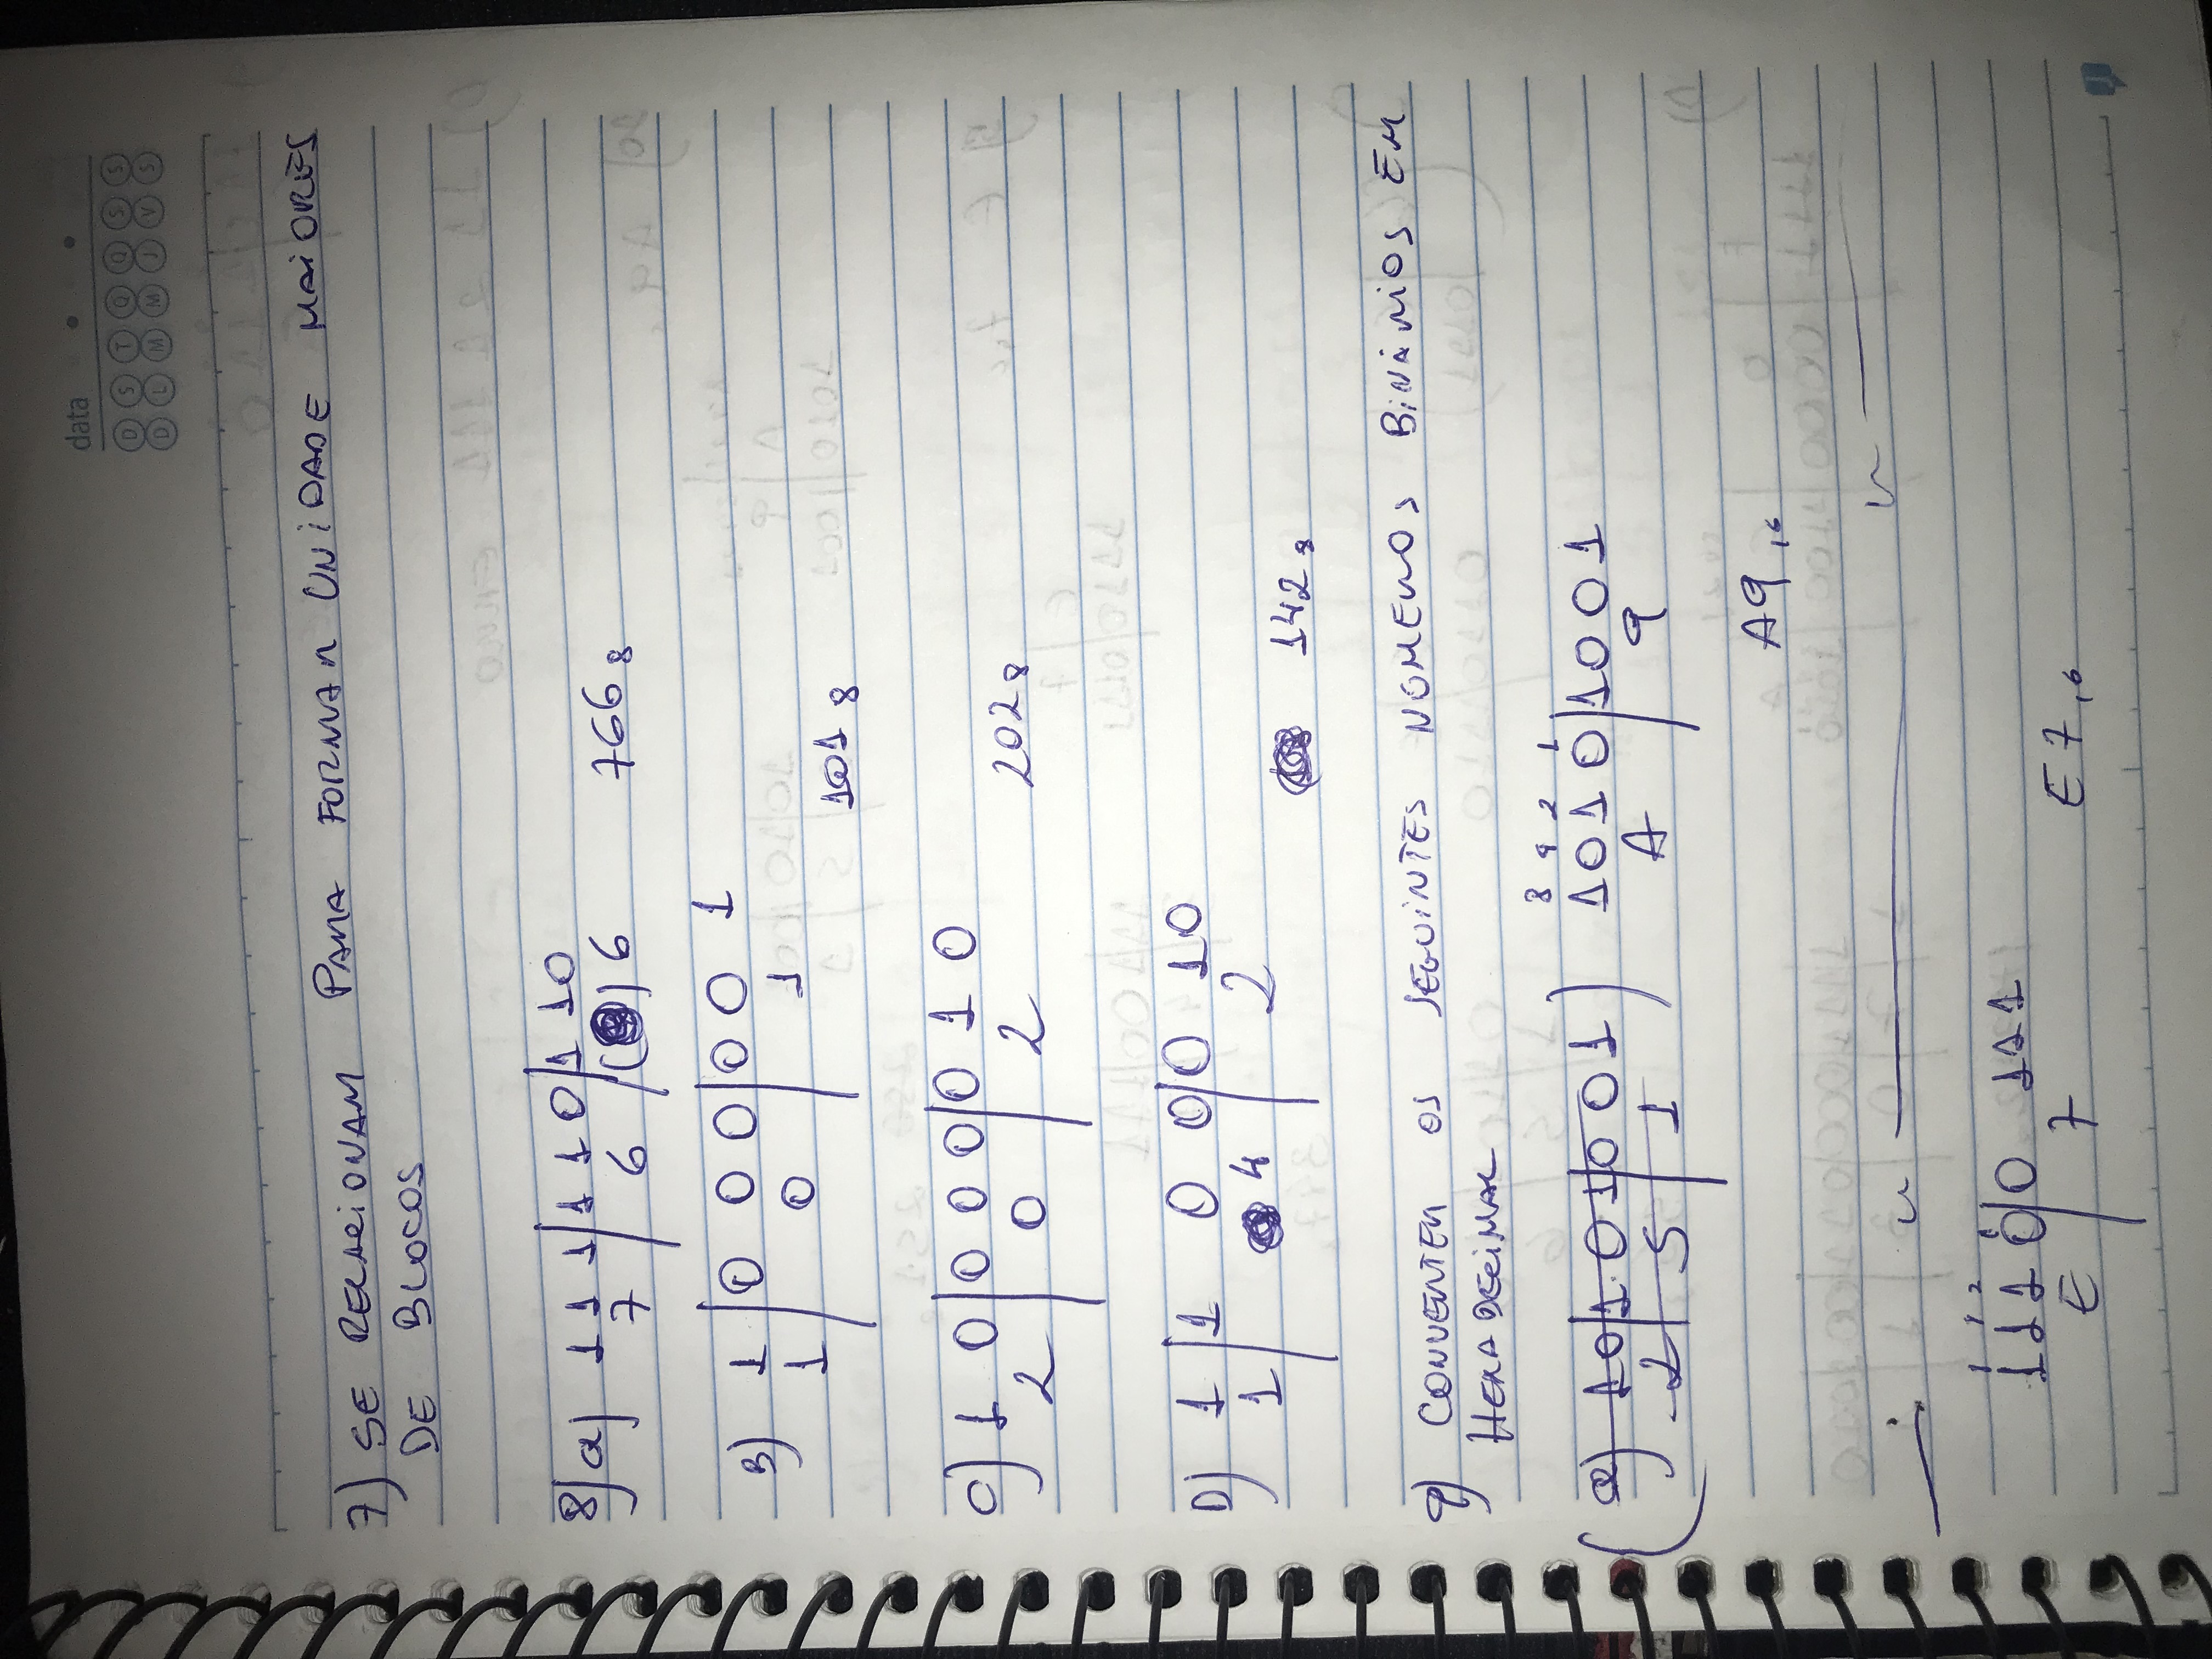 data
D S T Q Q S S
D L M M J V S
7) SE RELACIONAM PARA FORMAR UNIDADE MAIORES
DE BLOCOS
8) a) 1 1 1 | 1 1 0 | 1 1 0
7 | 6 | ( ) 6 766 8
B) 1 | 0 0 0 | 0 0 1
1 | 0 | 1
101 8
C) 1 0 | 0 0 0 | 0 1 0
2 | 0 | 2 202 8
D) 1 | 1 0 0 | 0 1 0
1 | 4 | 2
142 8
9) CONVERTER OS SEGUINTES NÚMEROS BINÁRIOS EM
HEXADECIMAL
8 4 2 1
(a) 10 | 1 0 1 | 0 0 1) 1 0 1 0 | 1 0 0 1
2 | 5 | 1 A | 9
A9 16
1 1 1 0 | 0 1 1 1
E | 7 E7 16